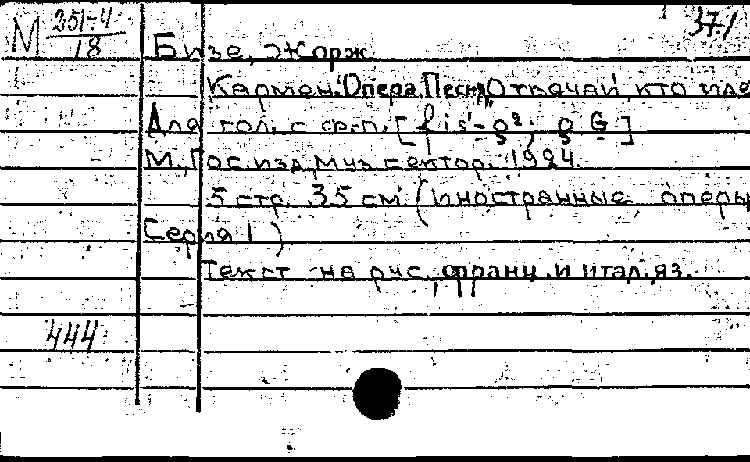 М 351-4/18 37-1
Бизе, Жорж.
Кармен. Опера. Песня „Отвечай кто иде
Для гол. с ф-п. [fis¹-g²; g G]
М., Гос. изд. муз. сектор. 1924.
5 стр. 35 см. (Иностранные оперы
Серия 1)
Текст на рус., франц. и итал. яз.
444